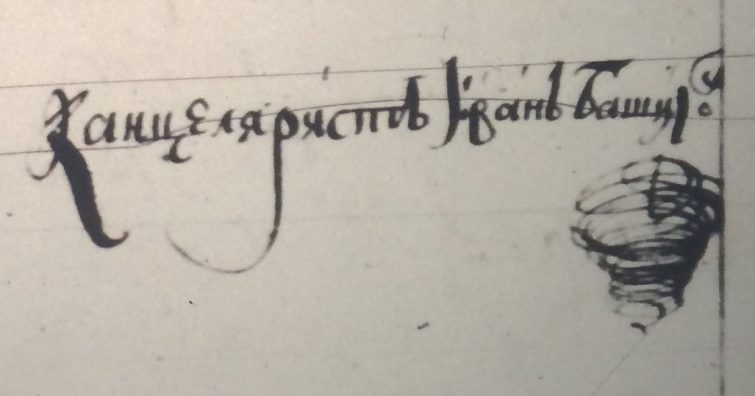 Канцеляристъ Іванъ Башил